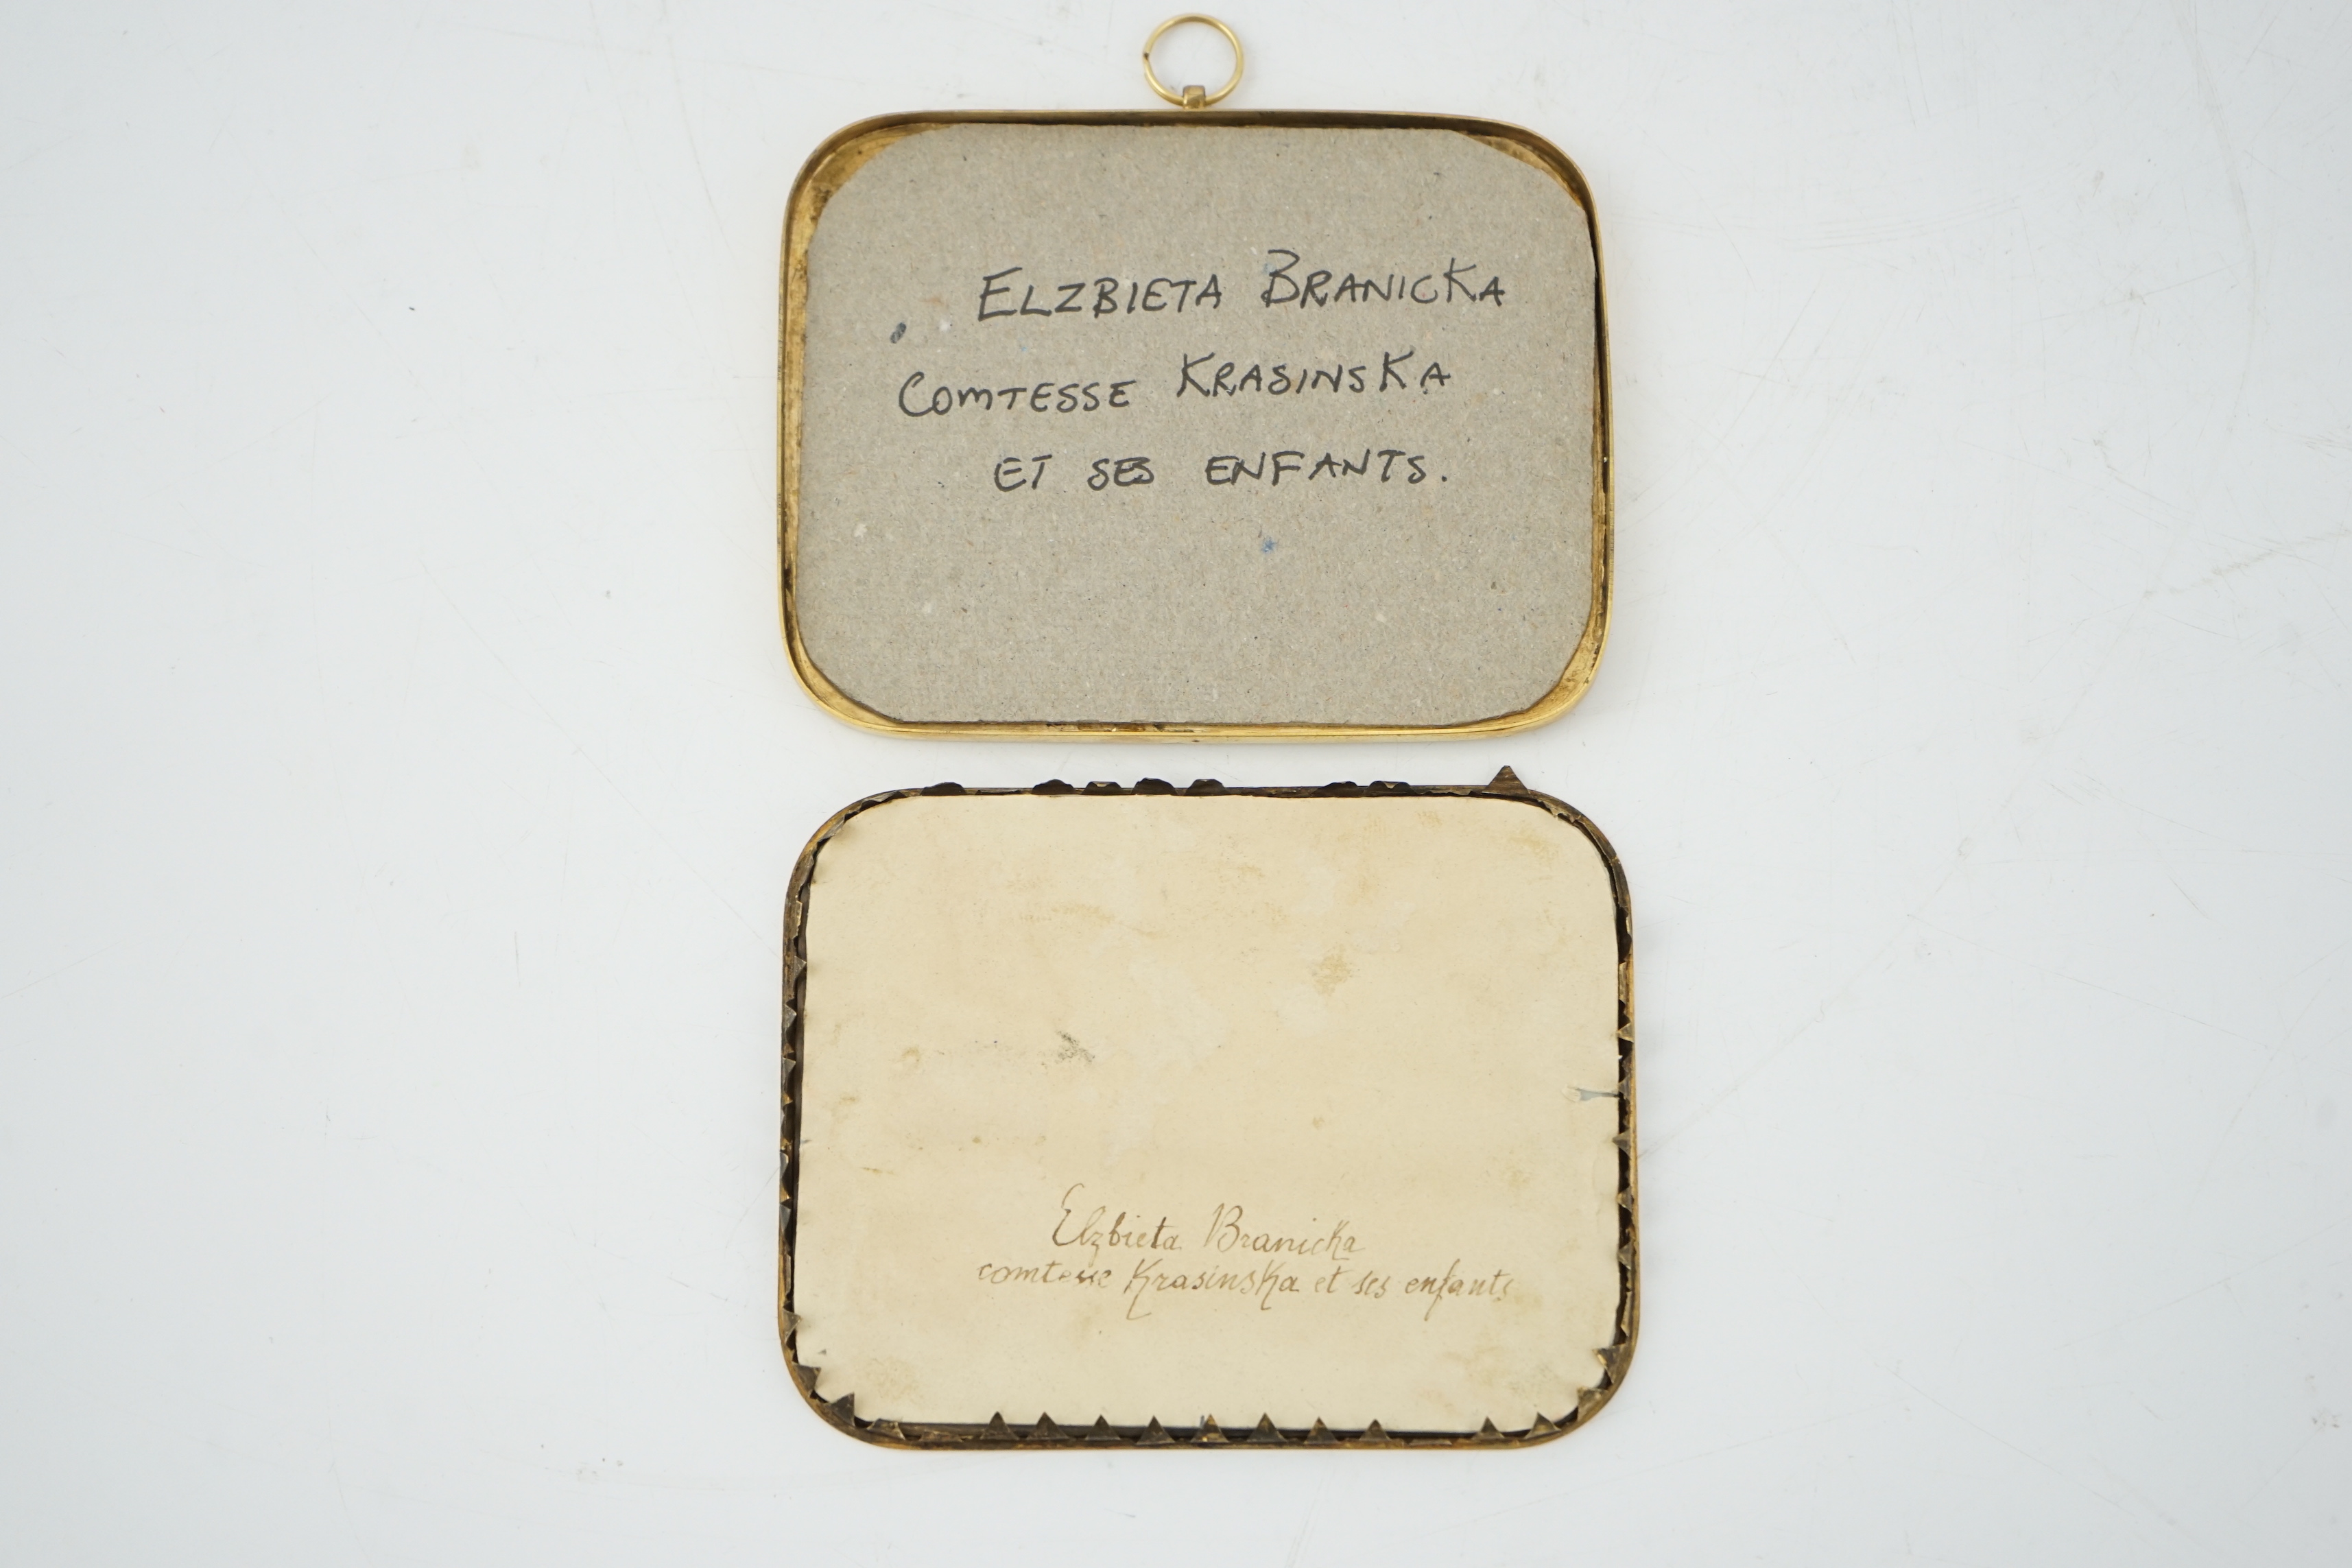 ELZBIETA BRANICKA
COMTESSE KRASINSKA
ET SES ENFANTS.
Elzbieta Branicka
comtesse Krasinska et ses enfants